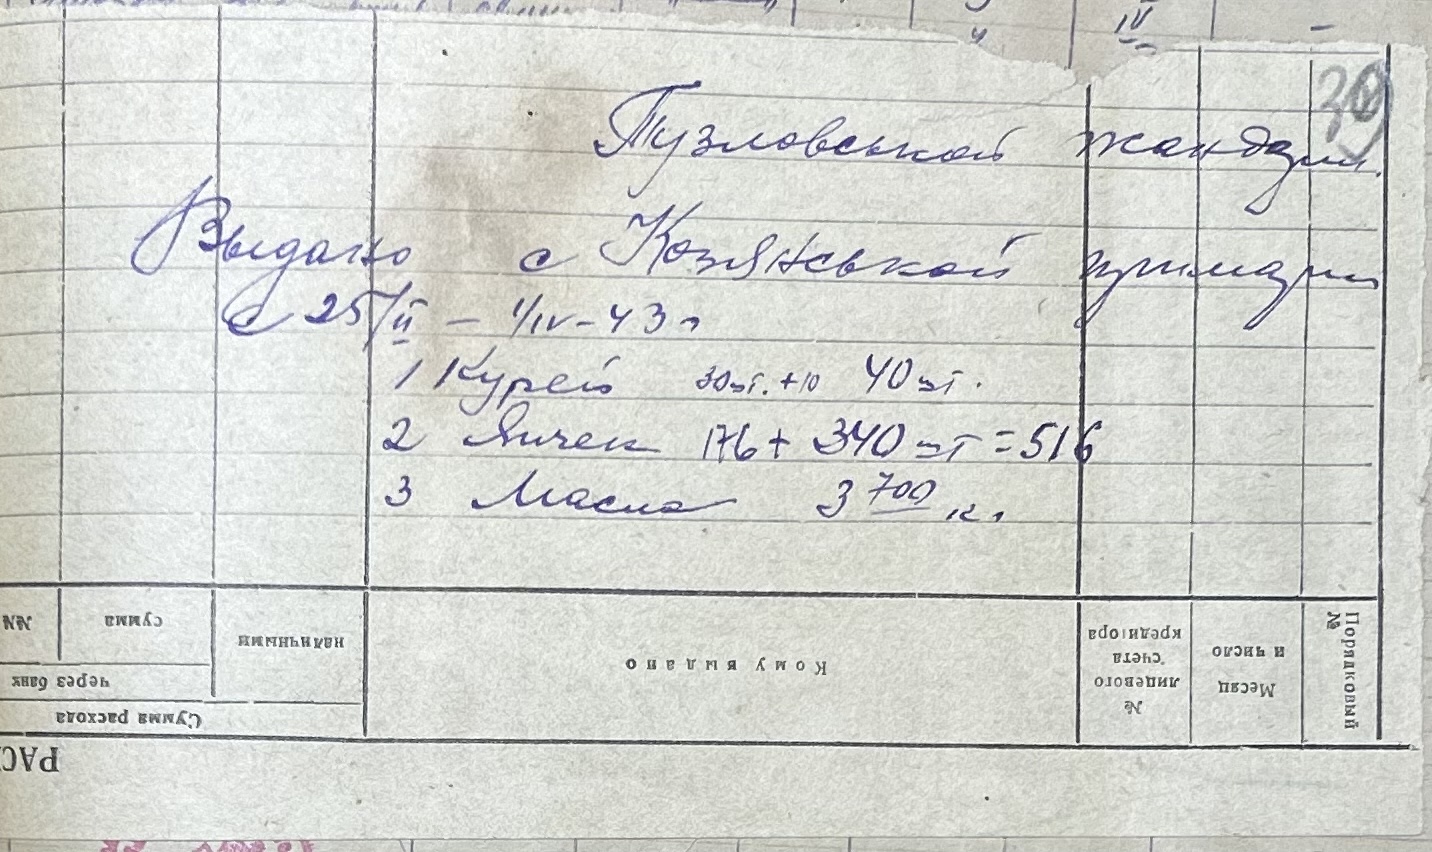 39
Тузловськой жандарм.
Выдано с Козянськой примарии
с 25/II – 1/IV – 43 г
1 Курей 30 шт. + 10 40 шт.
2 Яичек 176 + 340 шт = 516
3 Масла 3 700 кг
№№
сумма
наличными
через банк
Сумма расхода
Кому выдано
№ лицевого счета кредитора
Месяц и число
Порядковый №
РАС